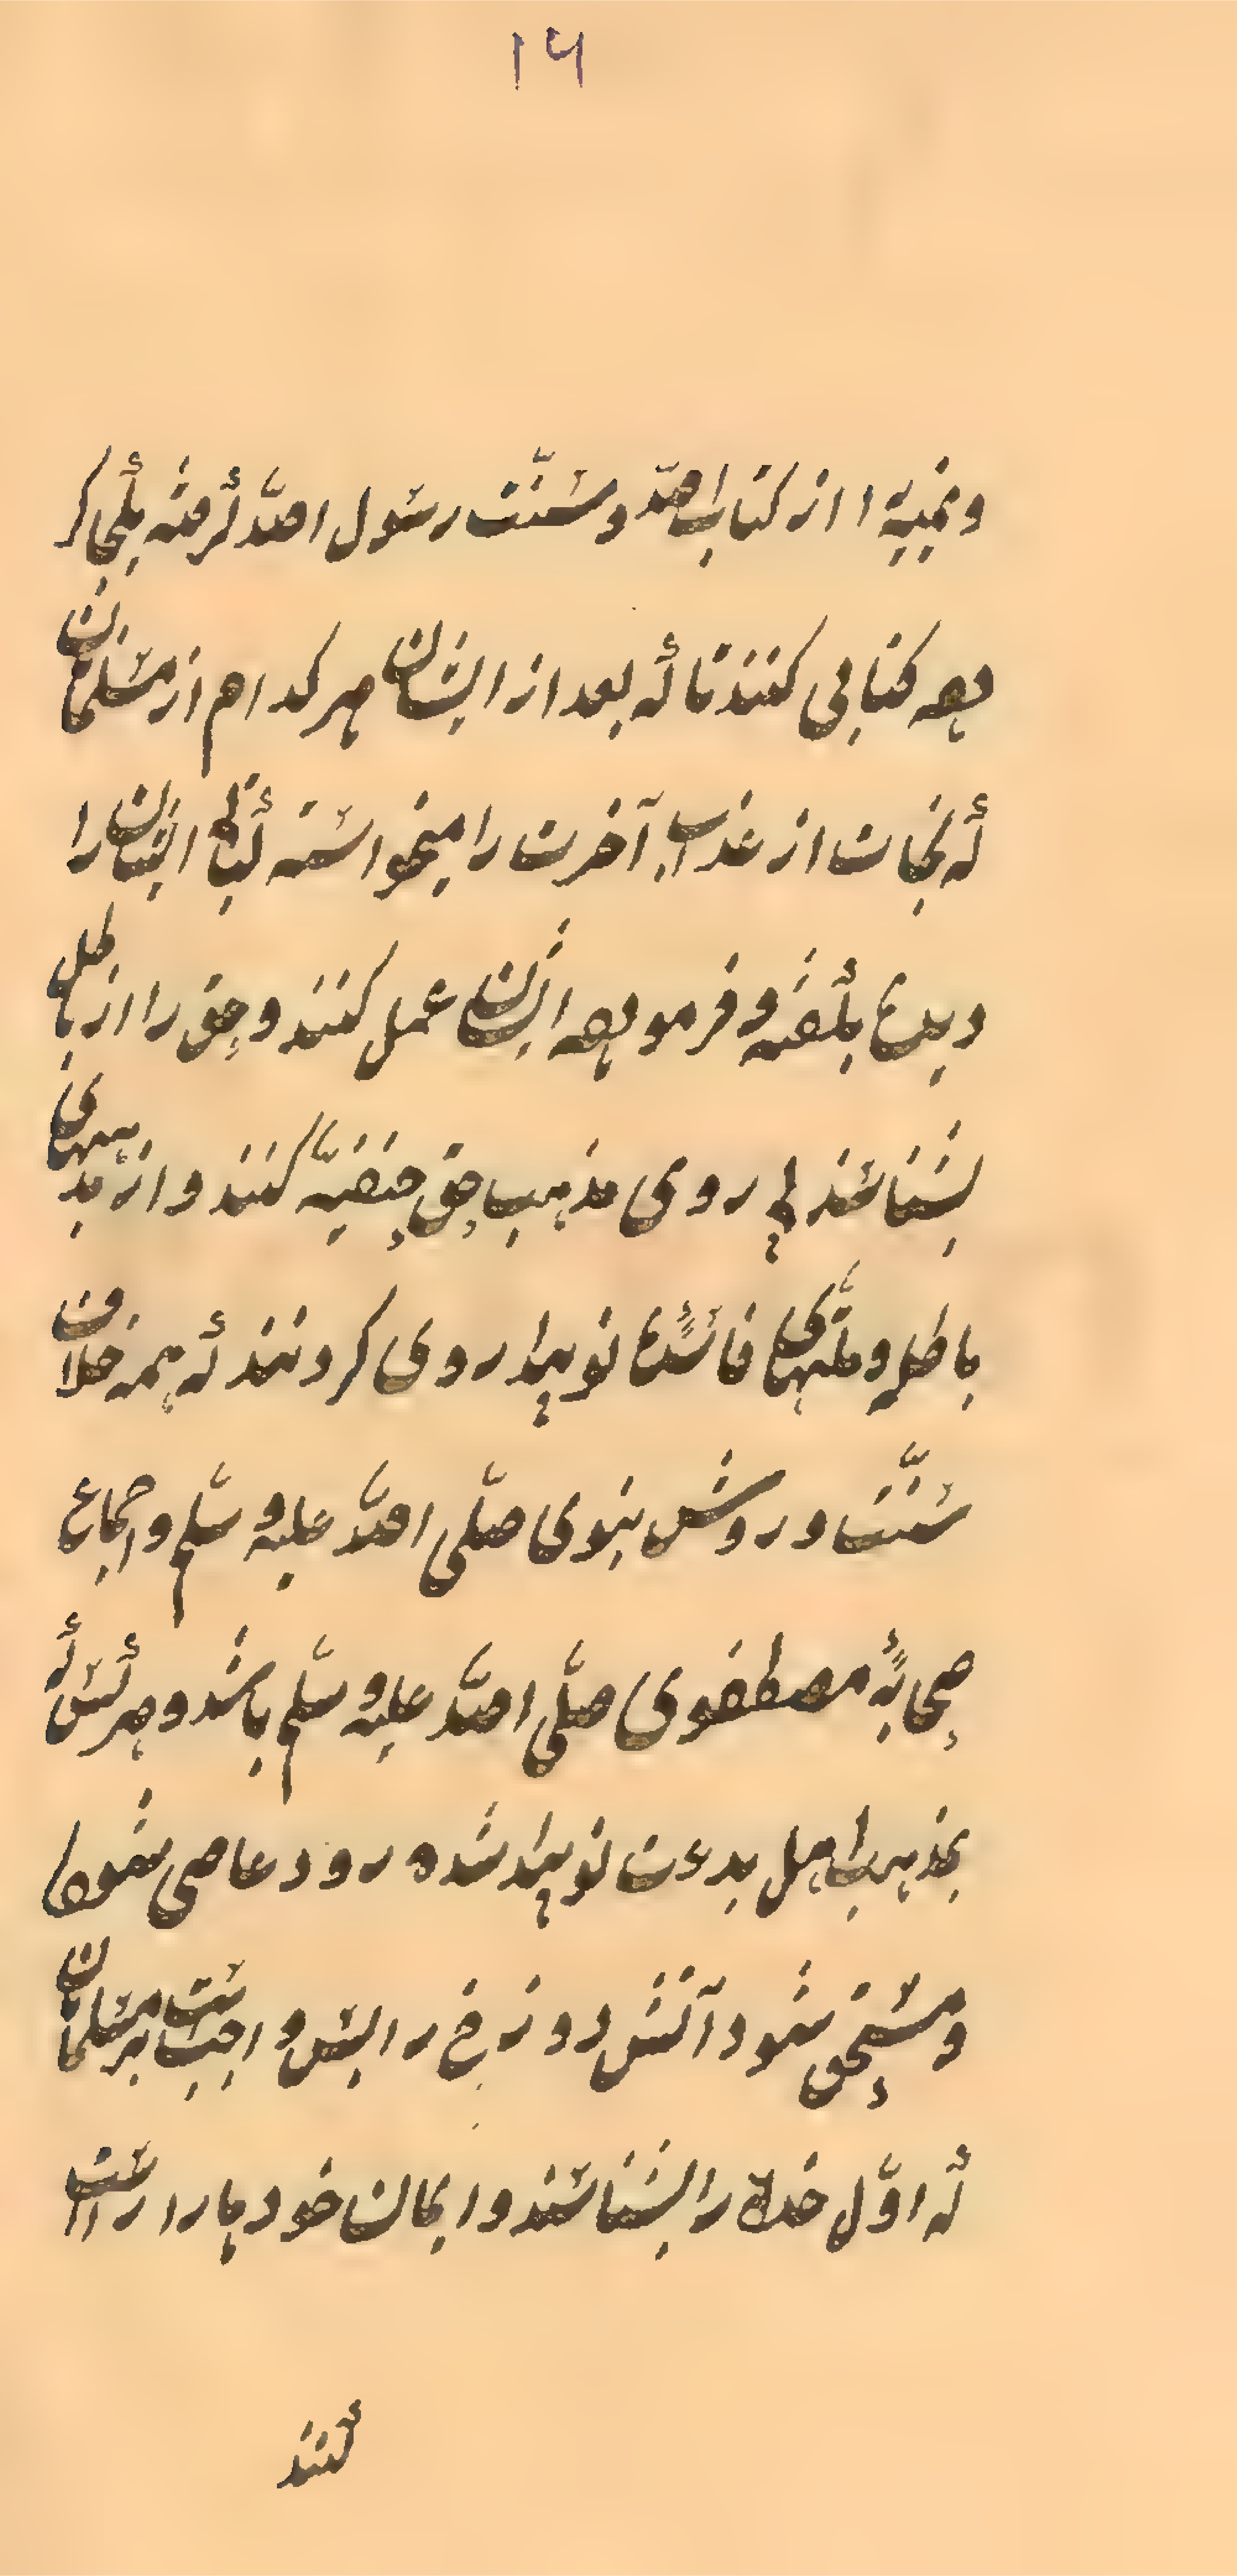 ۱۶
و نمیبهٔ ا از کتاب الله و سنّت رسول الله گرفته یکجا کر
ده کتابی کنند تا که بعد از ایشان هر کدام از مسلمانان
که نجات از عذاب آخرت را میخواسته کتاب ایشان را
دیده گفته و فرموده ایشان عمل کنند و حق را از باطل
بشناسند پی روی مذهب حق حنفیّه کنند و از مذهبهای
باطل و ملّتهای فاسدهٔ نو پیدا روی گردنند که همه خلاف
سنّت و روش نبوی صلّی الله علیه و سلّم و اجماع
صحابهٔ مصطفوی صلّی الله علیه و سلّم باشد و هر کس که
بمذهب اهل بدعت نو پیدا شده رود عاصی شود
و مستحق شود آتش دوزخ را پس واجب است بر مسلمانان
که اوّل خدا را بشناسند و ایمان خود ها را راست
کنند